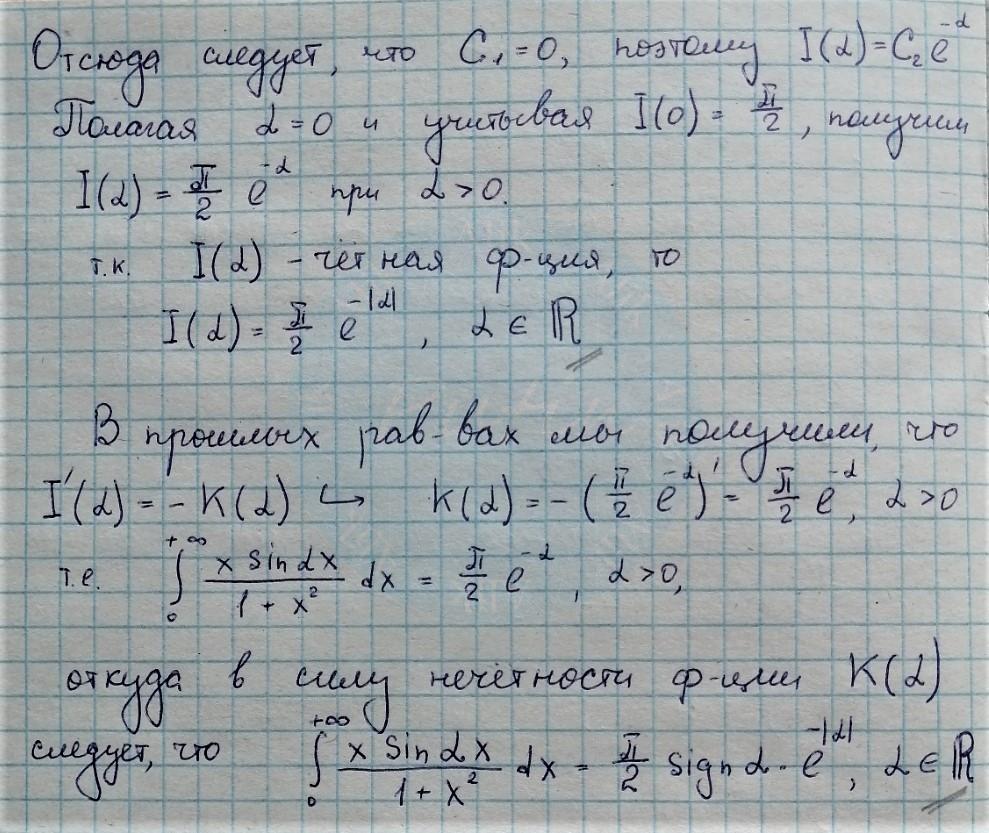 Отсюда следует, что C₁ = 0, поэтому I(α) = C₂ e^{-α}
Полагая α = 0 и учитывая I(0) = π/2, получим
I(α) = π/2 e^{-α} при α > 0.
т.к. I(α) - чётная ф-ция, то
I(α) = π/2 e^{-|α|}, α ∈ ℝ
В прошлых рав-вах мы получили, что
I'(α) = - K(α) ↪ K(α) = - (π/2 e^{-α})' = π/2 e^{-α}, α > 0
т.е. ∫₀^{+∞} (x sin αx)/(1 + x²) dx = π/2 e^{-α}, α > 0,
откуда в силу нечётности ф-ции K(α)
следует, что ∫₀^{+∞} (x sin αx)/(1 + x²) dx = π/2 sign α · e^{-|α|}, α ∈ ℝ